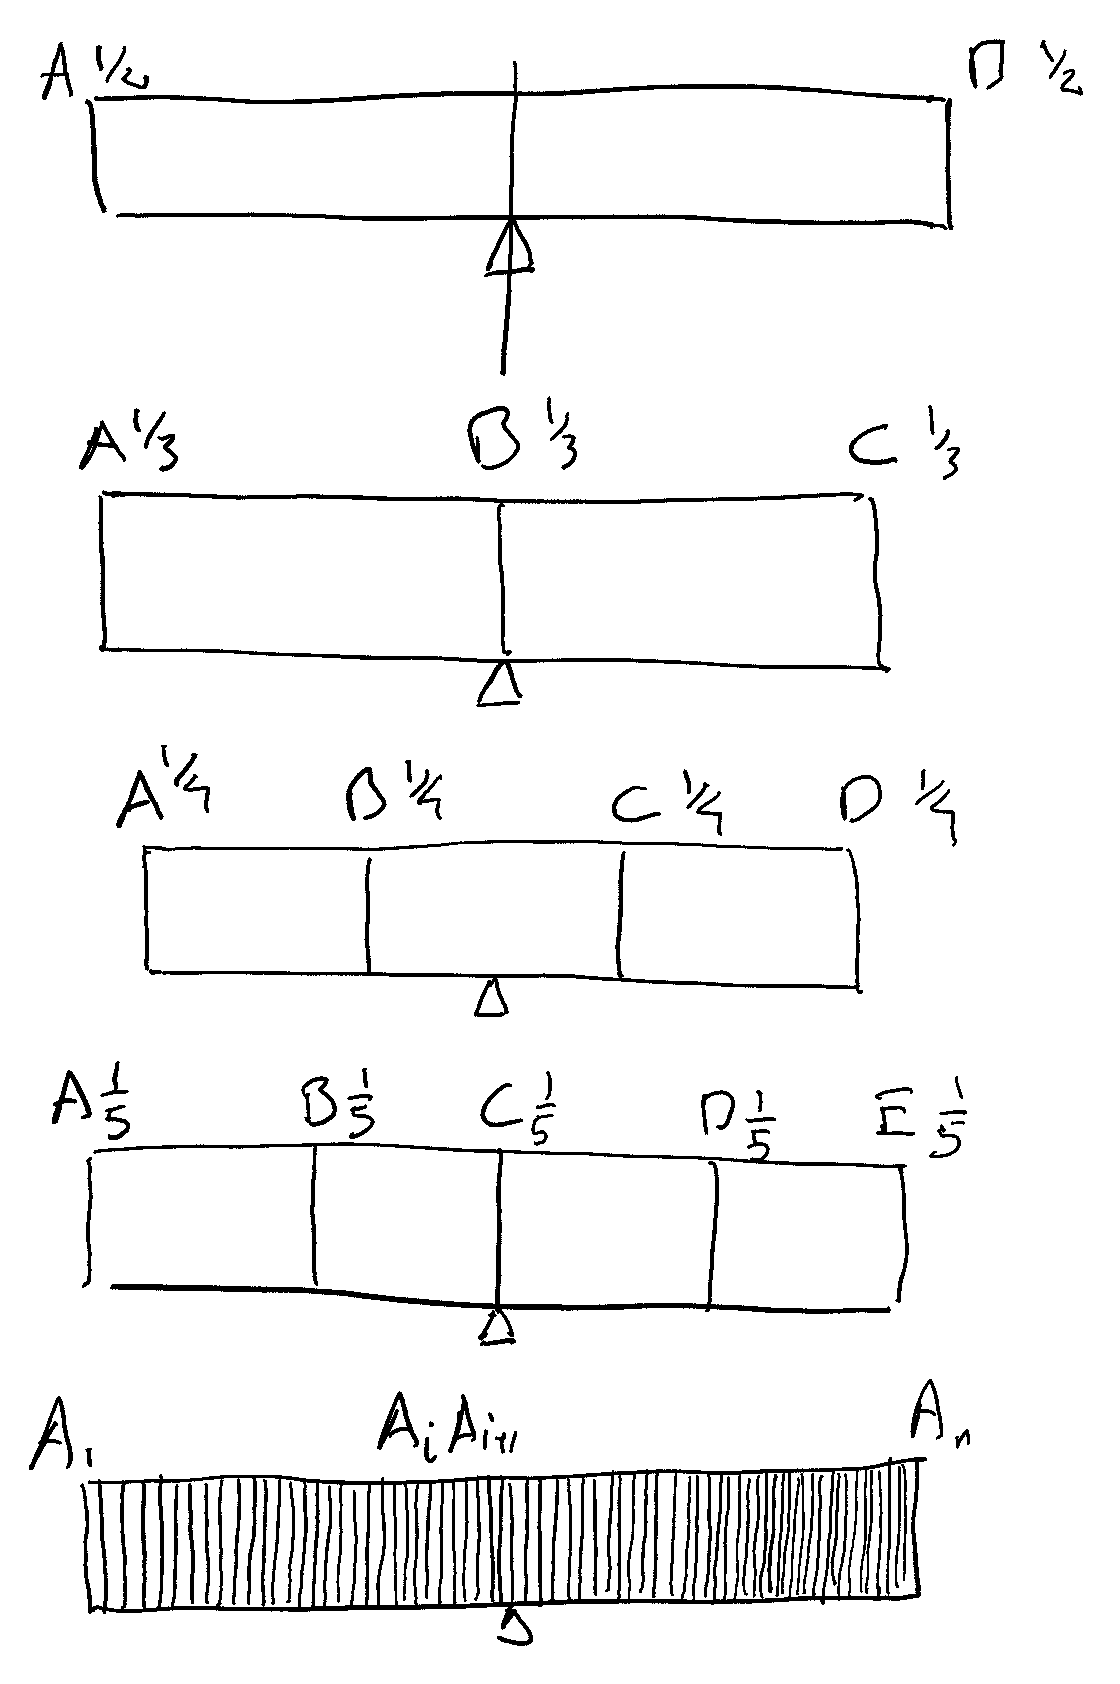 A 1/2 D 1/2
A 1/3 B 1/3 C 1/3
A 1/4 B 1/4 C 1/4 D 1/4
A 1/5 B 1/5 C 1/5 D 1/5 E 1/5
A₁ Aᵢ Aᵢ₊₁ Aₙ